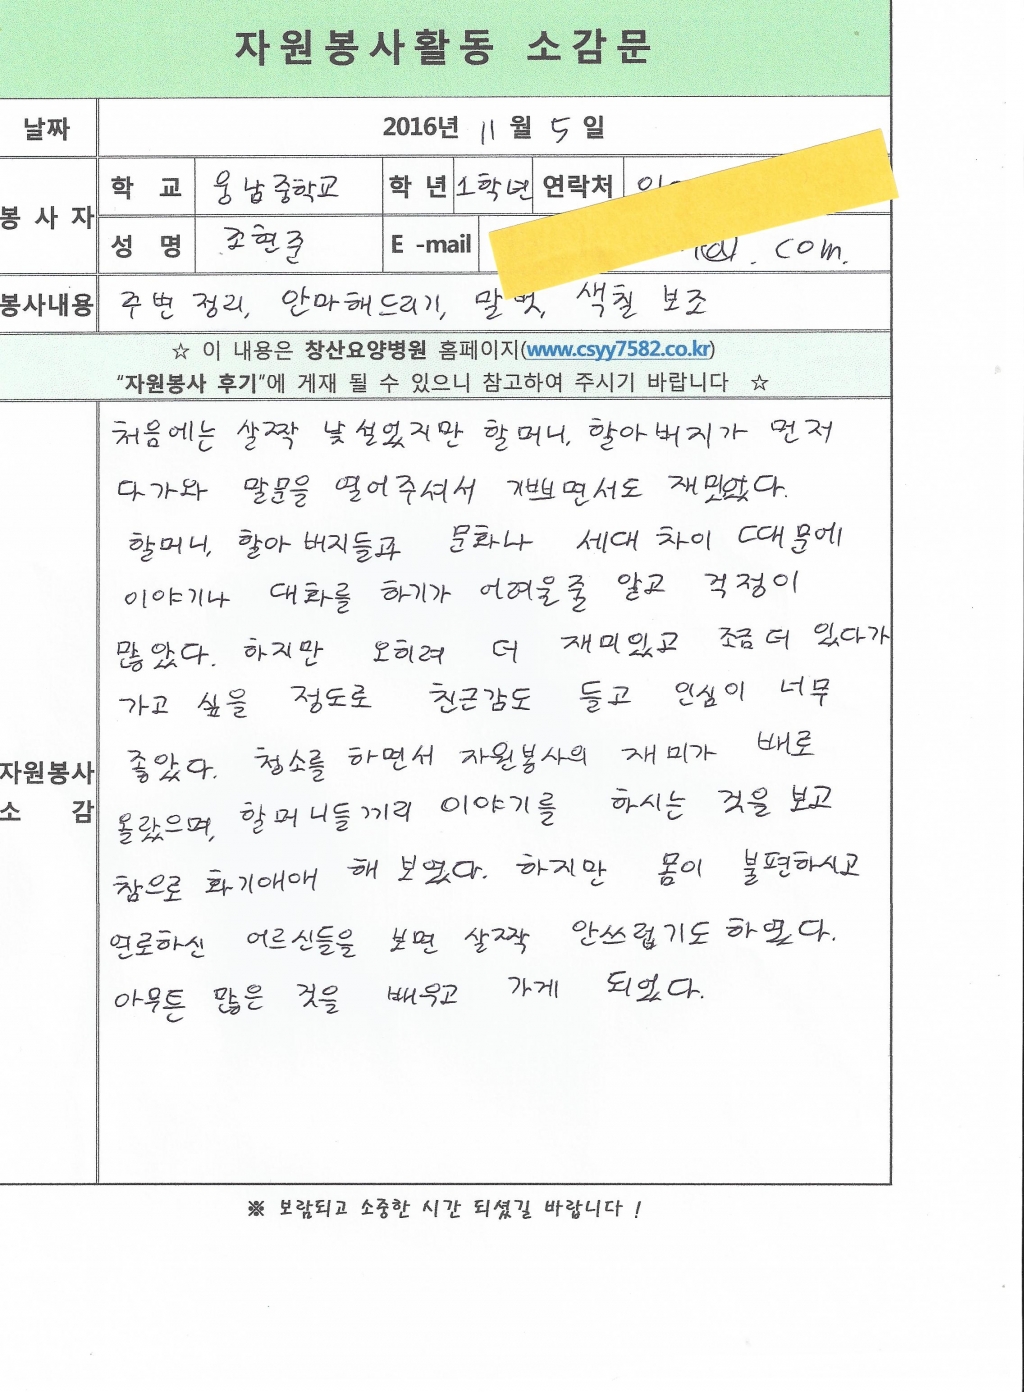 자원봉사활동 소감문
날짜 2016년 11월 5일
봉사자 학교 웅남중학교 학년 1학년 연락처
성명 조현준 E-mail .com.
봉사내용 주변 정리, 안마해드리기, 말벗, 색칠 보조
☆ 이 내용은 창산요양병원 홈페이지(www.csyy7582.co.kr)
“자원봉사 후기”에 게재 될 수 있으니 참고하여 주시기 바랍니다 ☆
자원봉사 소감
처음에는 살짝 낯설었지만 할머니, 할아버지가 먼저
다가와 말문을 열어주셔서 기쁘면서도 재밌었다.
할머니, 할아버지들과 문화나 세대 차이 때문에
이야기나 대화를 하기가 어려울줄 알고 걱정이
많았다. 하지만 오히려 더 재미있고 조금 더 있다가
가고 싶을 정도로 친근감도 들고 인심이 너무
좋았다. 청소를 하면서 자원봉사의 재미가 배로
올랐으며, 할머니들끼리 이야기를 하시는 것을 보고
참으로 화기애애 해 보였다. 하지만 몸이 불편하시고
연로하신 어르신들을 보면 살짝 안쓰럽기도 하였다.
아무튼 많은 것을 배우고 가게 되었다.
※ 보람되고 소중한 시간 되셨길 바랍니다 !